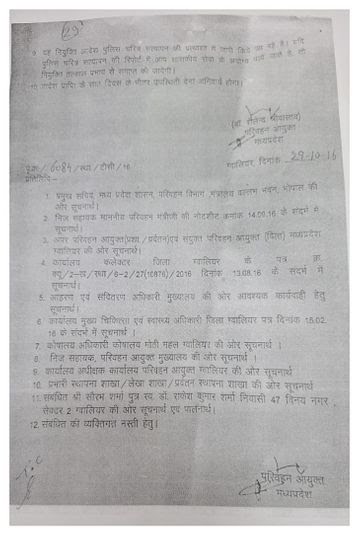 29
9. यह नियुक्ति आदेश पुलिस चरित्र सत्यापन की प्रत्याशा में जारी किये जा रहे है। यदि
पुलिस चरित्र सत्यापन की रिपोर्ट में आप शासकीय सेवा के अयोग्य पाये जाते है, तो
नियुक्ति तत्काल प्रभाव से समाप्त की जावेगी।
10. आदेश प्राप्ति के सात दिवस के भीतर उपस्थिति देना अनिवार्य होगा।
(डॉ. शैलेन्द्र श्रीवास्तव)
परिवहन आयुक्त
मध्यप्रदेश
ग्वालियर, दिनांक 29-10-16
पृ.क्र./6084/स्था/टीसी/16
प्रतिलिपि:–
1. प्रमुख सचिव, मध्य प्रदेश शासन, परिवहन विभाग मंत्रालय वल्लभ भवन, भोपाल की
ओर सूचनार्थ।
2. निज सहायक माननीय परिवहन मंत्रीजी की नोटशीट क्रमांक 14.09.16 के संदर्भ में
सूचनार्थ।
3. अपर परिवहन आयुक्त(प्रशा./प्रवर्तन)एवं संयुक्त परिवहन आयुक्त (वित्त) मध्यप्रदेश
ग्वालियर की ओर सूचनार्थ।
4. कार्यालय कलेक्टर जिला ग्वालियर के पत्र क्र.
क्यू/2–ख/स्था/6–2/27(10876)/2016 दिनांक 13.08.16 के संदर्भ में
सूचनार्थ।
5. आहरण एवं संवितरण अधिकारी मुख्यालय की ओर आवश्यक कार्यवाही हेतु
सूचनार्थ।
6. कार्यालय मुख्य चिकित्सा एवं स्वास्थ्य अधिकारी जिला ग्वालियर पत्र दिनांक 15.02.
16 के संदर्भ में सूचनार्थ ।
7. कोषालय अधिकारी कोषालय मोती महल ग्वालियर की ओर सूचनार्थ ।
8. निज सहायक, परिवहन आयुक्त मुख्यालय की ओर सूचनार्थ ।
9. कार्यालय अधीक्षक कार्यालय परिवहन आयुक्त ग्वालियर की ओर सूचनार्थ
10. प्रभारी स्थापना शाखा/लेखा शाखा/प्रवर्तन स्थापना शाखा की ओर सूचनार्थ
11. संबधित श्री सौरभ शर्मा पुत्र स्व. डॉ. राकेश कुमार शर्मा निवासी 47 विनय नगर
सेक्टर 2 ग्वालियर की ओर सूचनार्थ एवं पालनार्थ।
12. संबधित की व्यक्तिगत नस्ती हेतु।
परिवहन आयुक्त
मध्यप्रदेश